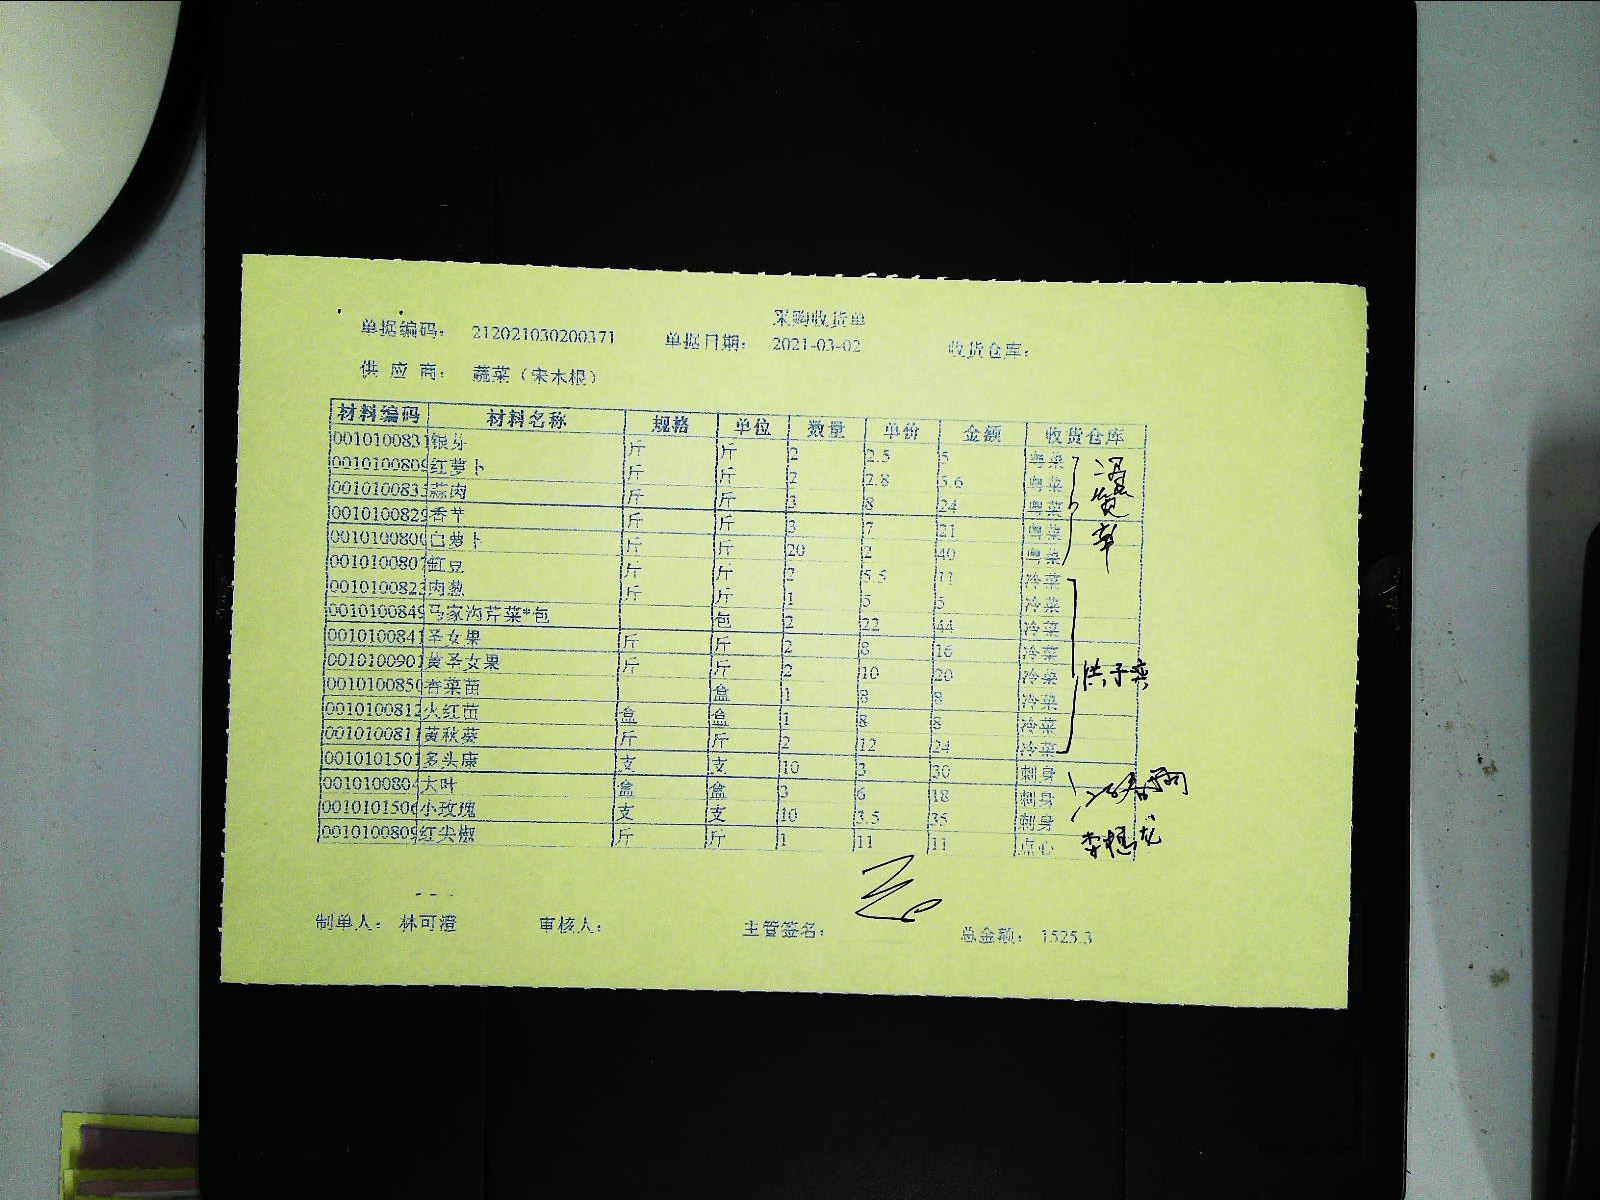 采购收货单
单据编码： 212021030200371 单据日期： 2021-03-02 收货仓库：
供应商： 蔬菜（宋木根）
材料编码 材料名称 规格 单位 数量 单价 金额 收货仓库
0010100831 银芽 斤 斤 2 2.5 5 粤菜
001010080 红萝卜 斤 斤 2 2.8 5.6 粤菜
001010083 蒜肉 斤 斤 3 8 24 粤菜
001010082 香芹 斤 斤 3 7 21 粤菜
001010080 白萝卜 斤 斤 20 2 40 粤菜
001010080 豇豆 斤 斤 2 5.5 11 冷菜
001010082 肉葱 斤 斤 1 5 5 冷菜
001010084 马家沟芹菜*包 包 2 22 44 冷菜
0010100841 圣女果 斤 斤 2 8 16 冷菜
0010100901 黄圣女果 斤 斤 2 10 20 冷菜
001010085 香菜苗 盒 1 8 8 冷菜
0010100812 火红苗 盒 盒 1 8 8 冷菜
0010100811 黄秋葵 斤 斤 2 12 24 冷菜
0010101501 多头康 支 支 10 3 30 刺身
001010080 大叶 盒 盒 3 6 18 刺身
001010150 小玫瑰 支 支 10 3.5 35 刺身
001010080 红尖椒 斤 斤 1 11 11 点心
洪子奕
制单人： 林可澄 审核人： 主管签名： 总金额： 1525.3